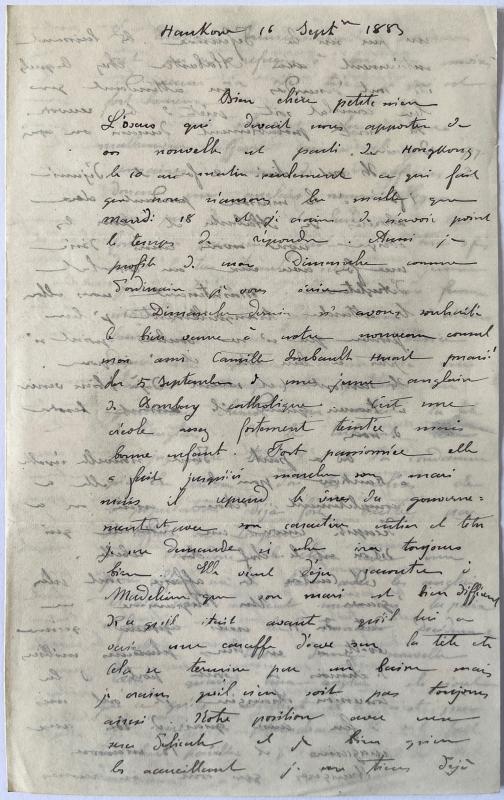 Hankow 16 Septbre 1883
Bien chère petite mère
L'Oxus qui devait nous apporter de
vos nouvelles est parti de Hongkong
le 10 au matin seulement ce qui fait
que nous n'aurons les malles que
mardi 18 et j'ai crainte de n'avoir point
le temps de répondre. Aussi je
profite de mon Dimanche comme
d'ordinaire pr vous écrire
Dimanche dernier ns avons souhaité
la bien venue à notre nouveau consul
mon ami Camille Imbault Huart marié
du 5 Septembre à une jeune anglaise
de Bombay catholique C'est une
créole assez fortement teintée mais
bonne enfant. Fort passionnée elle
a fait jusqu'ici marcher son mari
mais il reprend les rênes du gouverne-
ment et avec son caractère entier et têtu
je me demande si cela ira toujours
bien. Elle vient déjà raconter à
Madeleine que son mari est bien différent
de ce qu'il était avant qu'il lui a
versé une carafe d'eau sur la tête etc
Cela se termine par un baiser mais
je crains qu'il n'en soit pas toujours
ainsi Notre position avec eux
sera délicate et bien qu'en
les accueillant je me tiens déjà